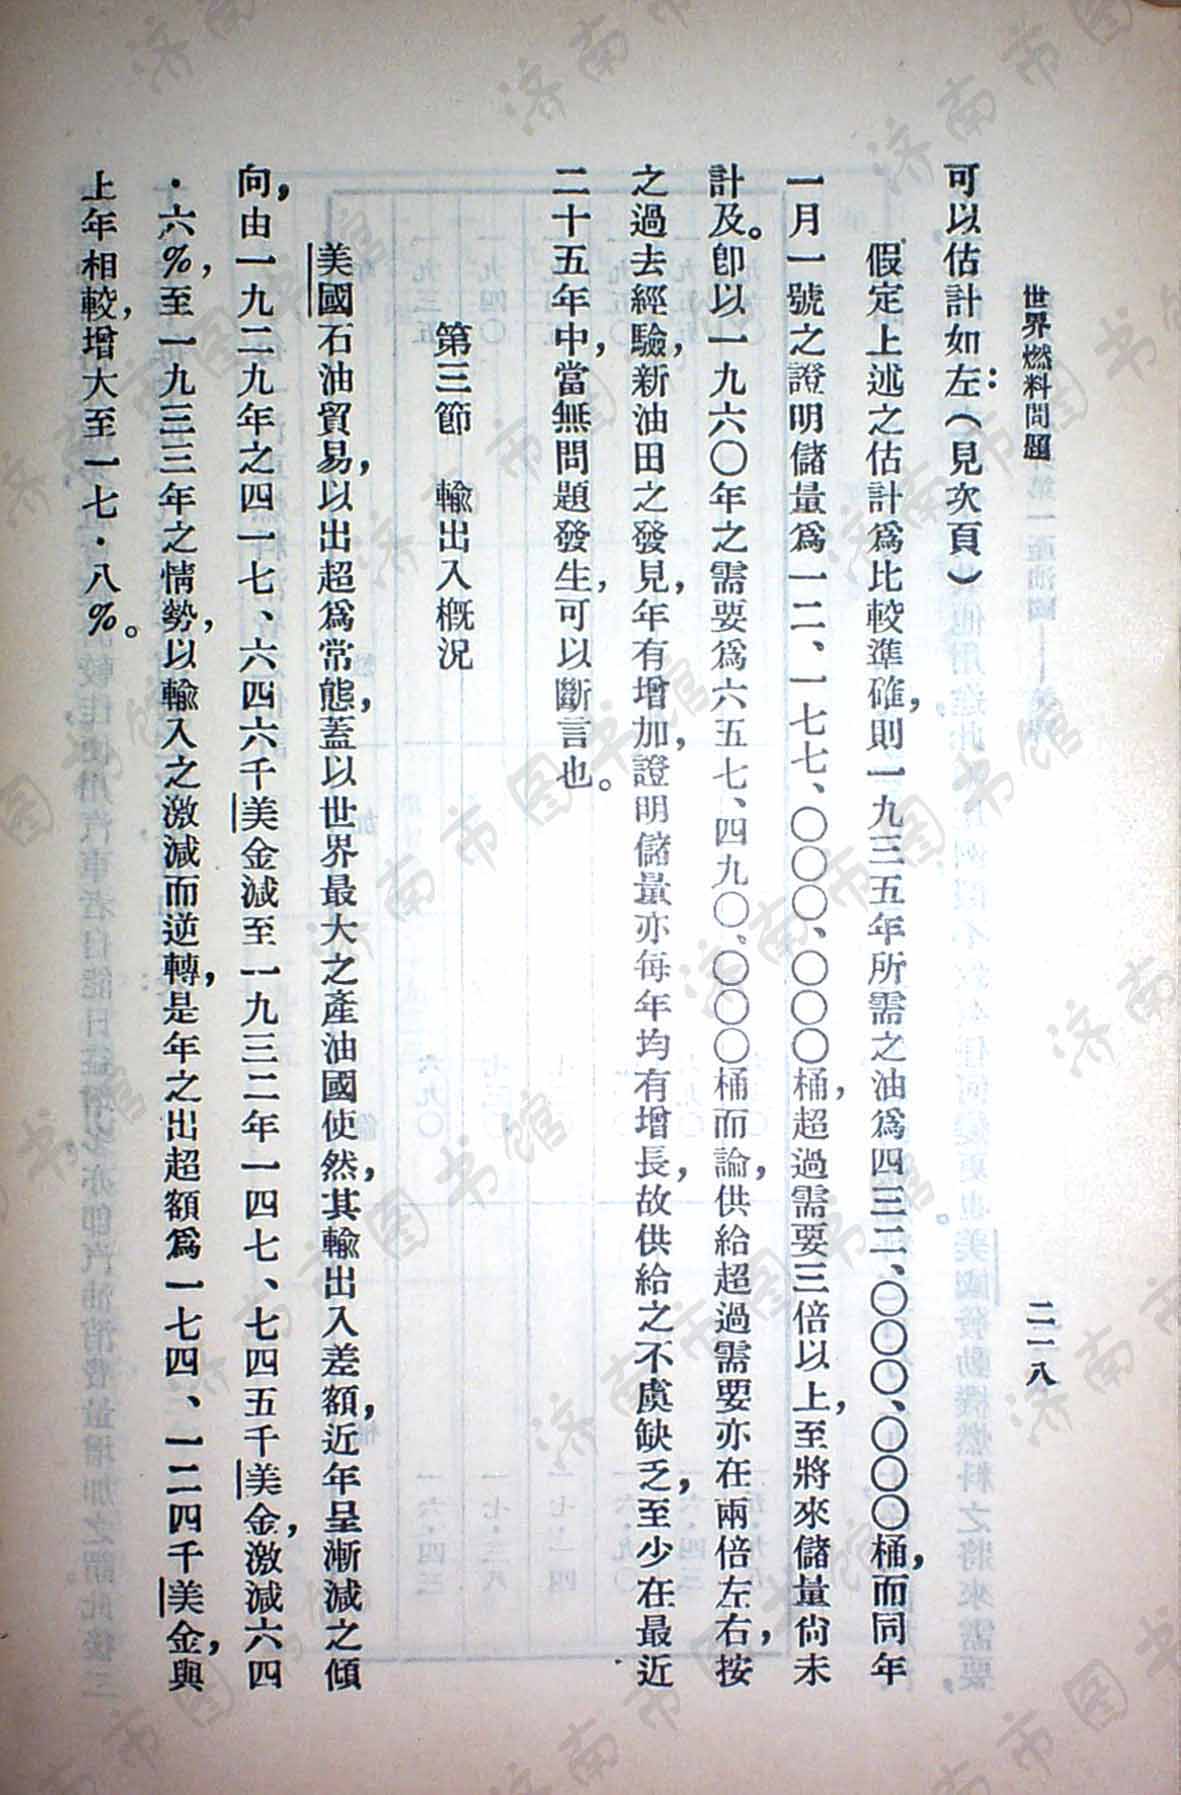 世界燃料問題
二一八
可以估計如左：（見次頁）
假定上述之估計爲比較準確，則一九三五年所需之油爲四三二、〇〇〇、〇〇〇桶，而同年
一月一號之證明儲量爲一二、一七七、〇〇〇、〇〇〇桶，超過需要三倍以上，至將來儲量尙未
計及。卽以一九六〇年之需要爲六五七、四九〇、〇〇〇桶而論，供給超過需要亦在兩倍左右，按
之過去經驗，新油田之發見，年有增加，證明儲量亦每年均有增長，故供給之不虞缺乏，至少在最近
二十五年中，當無問題發生，可以斷言也。
第三節　輸出入概況
美國石油貿易，以出超爲常態，蓋以世界最大之產油國使然，其輸出入差額，近年呈漸減之傾
向，由一九二九年之四一七、六四六千美金減至一九三二年一四七、七四五千美金，激減六四
・六%，至一九三三年之情勢，以輸入之激減而逆轉，是年之出超額爲一七四、一二四千美金，與
上年相較，增大至一七・八%。
济南市图书馆